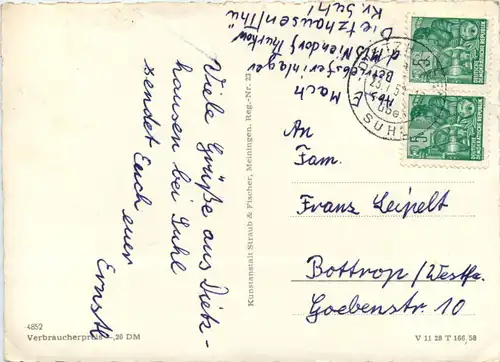 Viele Grüße aus Dietz-
hausen bei Suhl
sendet Euch euer
Ernstl
4852
Verbraucherpreis -,20 DM
Kunstanstalt Straub & Fischer, Meiningen. Reg.-Nr. 23
Abs. E. Mach
Betriebsferienlager
d. MTS Niendorf
Dietzhausen/Thü
Kr. Suhl
SUHL
DEUTSCHE
DEMOKRATISCHE REPUBLIK
5
DEUTSCHE
DEMOKRATISCHE REPUBLIK
5
An
Fam.
Franz Leipelt
Bottrop/Westfa.
Goebenstr. 10
V 11 28 T 166/58